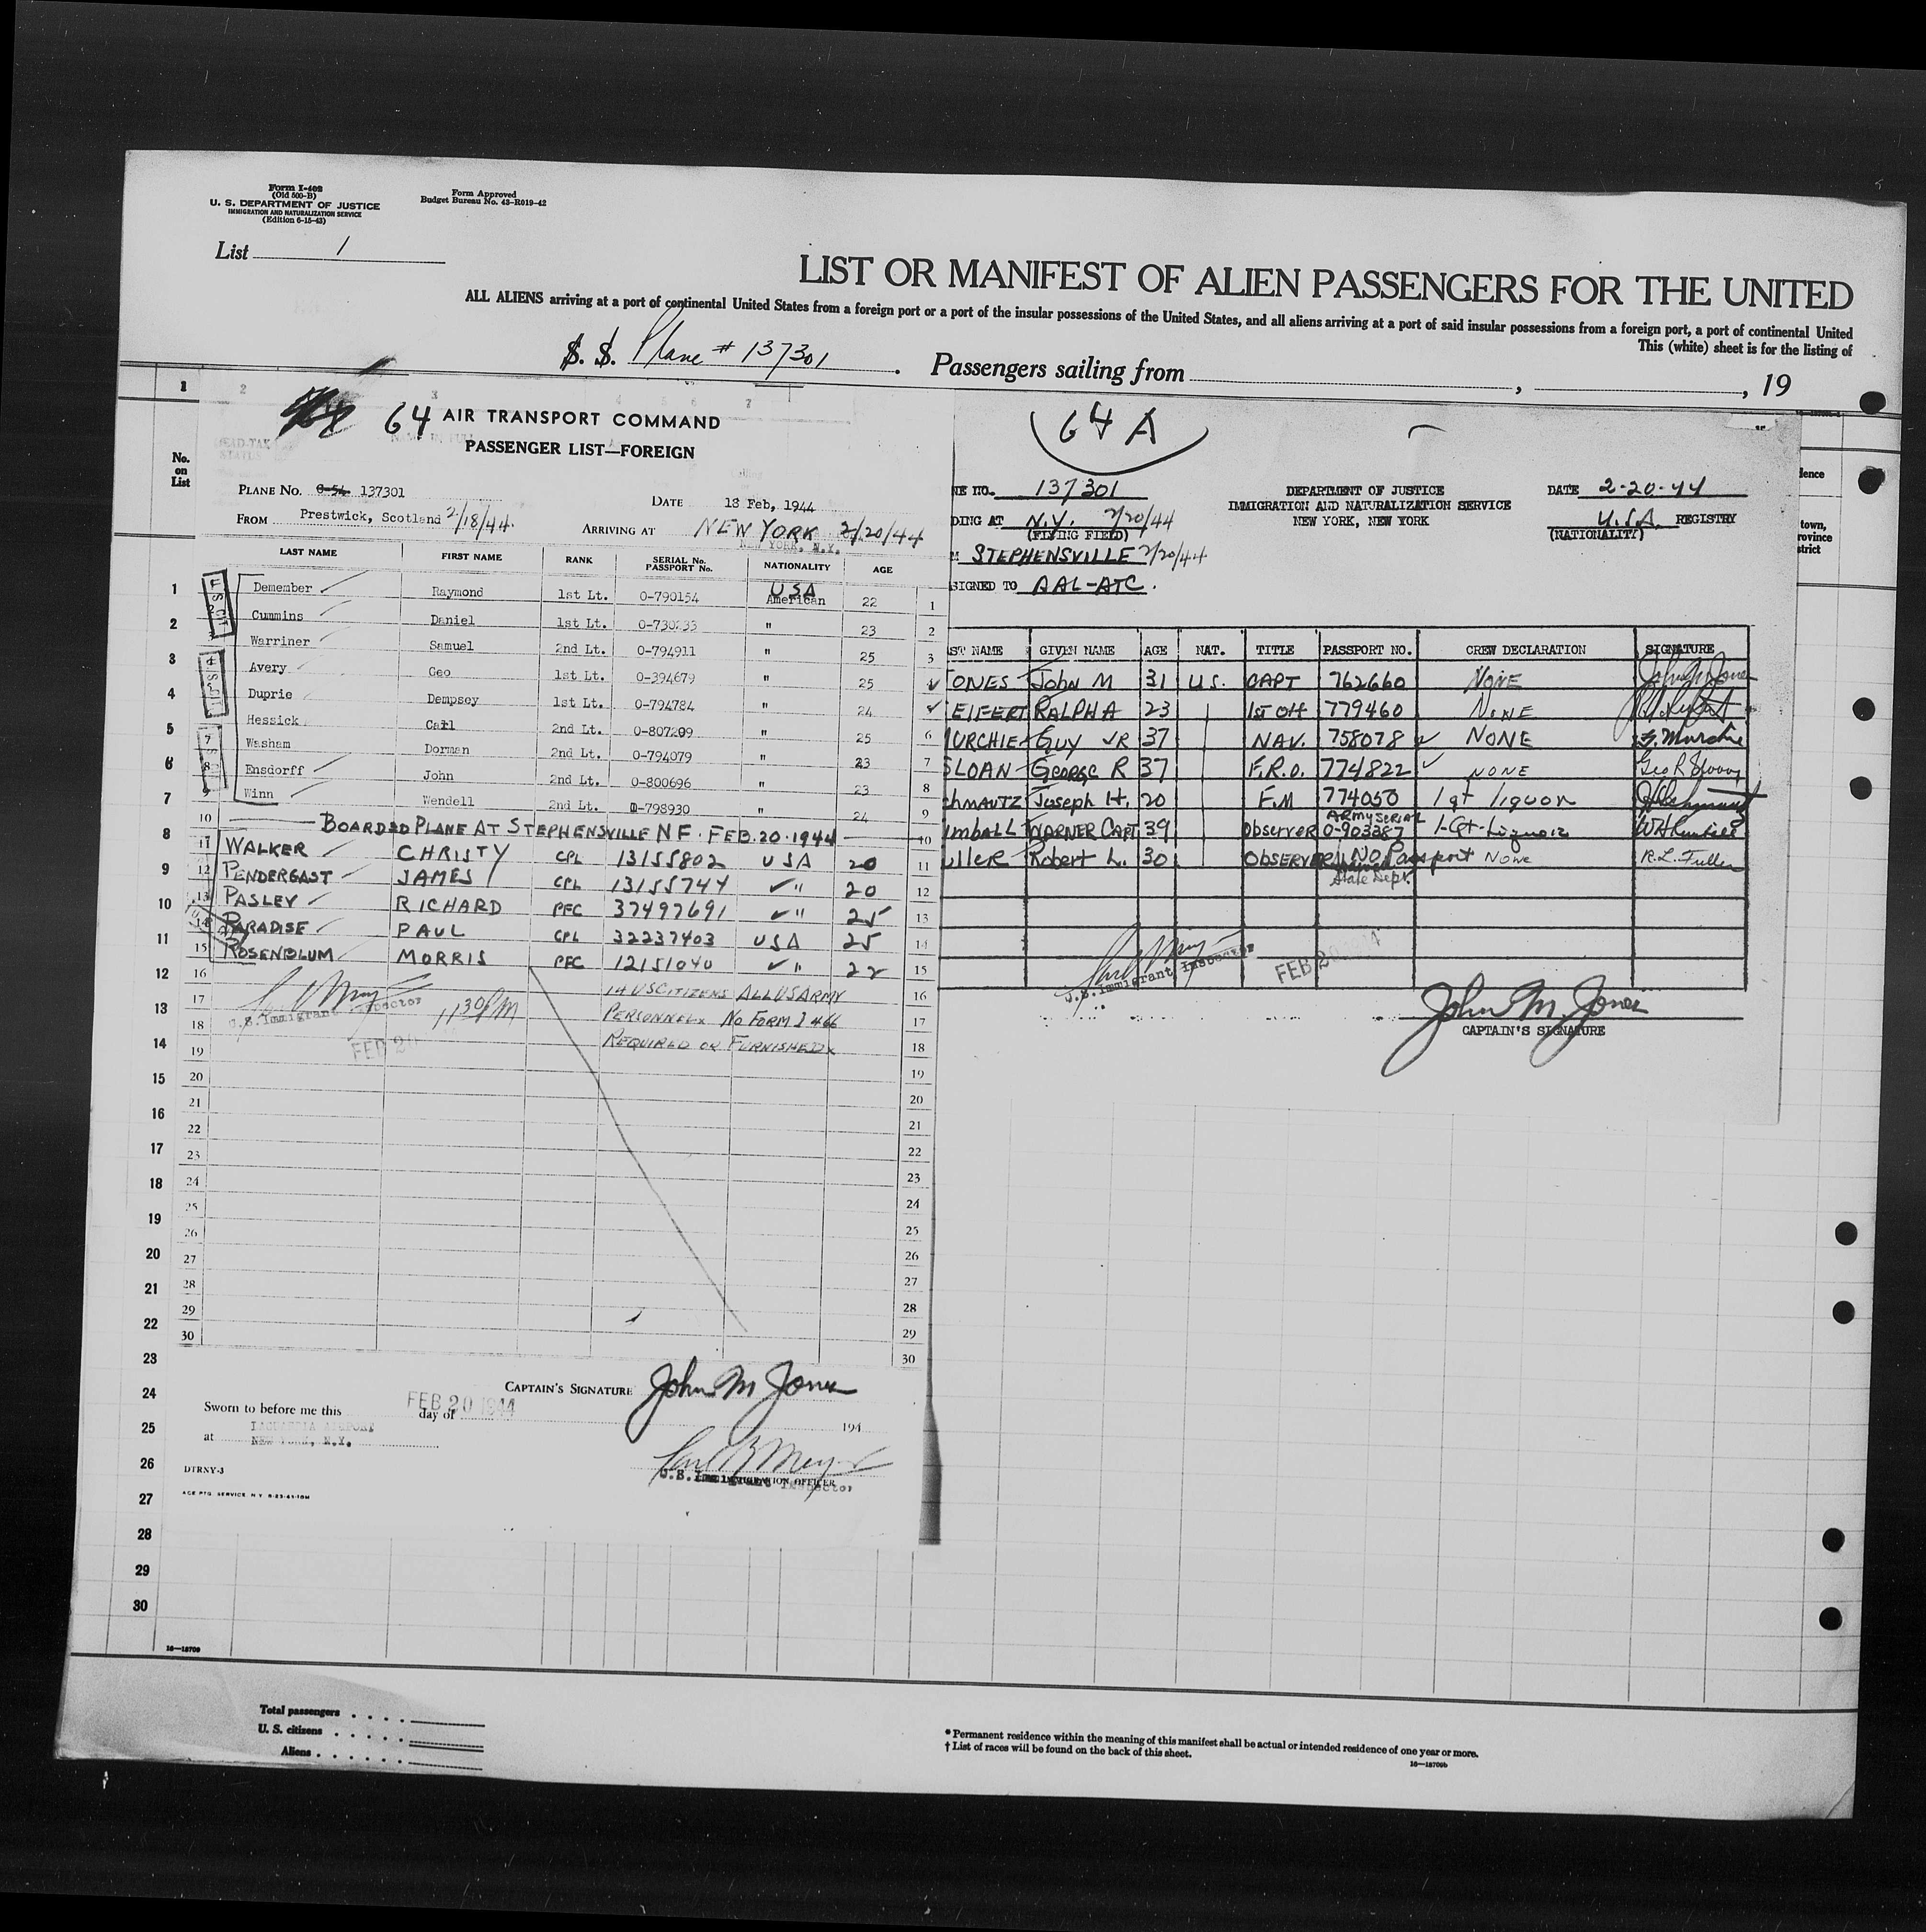 Form I-402
(Old 500-B)
U. S. DEPARTMENT OF JUSTICE
IMMIGRATION AND NATURALIZATION SERVICE
(Edition 6-15-43)
Form Approved
Budget Bureau No. 43-R019-42
List 1
LIST OR MANIFEST OF ALIEN PASSENGERS FOR THE UNITED
ALL ALIENS arriving at a port of continental United States from a foreign port or a port of the insular possessions of the United States, and all aliens arriving at a port of said insular possessions from a foreign port, a port of continental United
This (white) sheet is for the listing of
S. S. Plane # 137301 . Passengers sailing from , , 19
1 2 3 4 5 6 7
No.
on
List
64 AIR TRANSPORT COMMAND
PASSENGER LIST—FOREIGN
PLANE No. C-54 137301
DATE 18 Feb, 1944
FROM Prestwick, Scotland 2/18/44.
ARRIVING AT NEW YORK 2/20/44
NEW YORK, N.Y.
LAST NAME FIRST NAME RANK SERIAL No. PASSPORT No. NATIONALITY AGE
Demember Raymond 1st Lt. 0-790154 USA American 22
Cummins Daniel 1st Lt. 0-730233 " 23
Warriner Samuel 2nd Lt. 0-794911 " 25
Avery Geo 1st Lt. 0-394679 " 25
Duprie Dempsey 1st Lt. 0-794784 " 24
Hessick Carl 2nd Lt. 0-807209 " 25
Washam Dorman 2nd Lt. 0-794079 " 23
Ensdorff John 2nd Lt. 0-800696 " 23
Winn Wendell 2nd Lt. 0-798930 " 24
10 BOARDED PLANE AT STEPHENSVILLE NF. FEB. 20. 1944
11 WALKER CHRISTY CPL 13155802 USA 20
12 PENDERGAST JAMES CPL 13155744 " 20
13 PASLEY RICHARD PFC 37497691 " 25
14 PARADISE PAUL CPL 32237403 USA 25
15 ROSENBLUM MORRIS PFC 12151040 " 22
16 14 US CITIZENS ALL US ARMY
17 PERSONNEL x NO FORM I 466
18 REQUIRED OR FURNISHED x
U.S. Immigrant Inspector
1130PM
FEB 20
19
20
21
22
23
24
25
26
27
28
29
30
CAPTAIN'S SIGNATURE John M Jones
Sworn to before me this FEB 20 1944 day of 194
at LAGUARDIA AIRPORT
NEW YORK, N.Y.
U.S. Immigrant Inspector
IMMIGRATION OFFICER
DTRNY-3
64 A
NE NO. 137301
DEPARTMENT OF JUSTICE
IMMIGRATION AND NATURALIZATION SERVICE
NEW YORK, NEW YORK
DATE 2-20-44
DING AT N.Y. 2/20/44
(FLYING FIELD)
U.S.A. REGISTRY
(NATIONALITY)
M STEPHENSVILLE 2/20/44
SIGNED TO AAL-ATC.
ST NAME GIVEN NAME AGE NAT. TITLE PASSPORT NO. CREW DECLARATION SIGNATURE
ONES John M 31 U.S. CAPT 762660 NONE John M Jones
EIFERT RALPH A 23 1st Off 779460 NONE
URCHIE GUY JR 37 NAV. 758078 NONE G. Murchie
SLOAN GEORGE R 37 F.R.O. 774822 NONE Geo R Sloan
CHMAUTZ Joseph H. 20 F.M 774050 1 qt liquor
IMBALL WARNER CAPT 39 Observer ARMY SERIAL 0-903387 1-Qt-Liquor
ULLER Robert L. 30 OBSERVER No Passport None R.L. Fuller
State Dept.
U.S. Immigrant Inspector
FEB 20 1944
John M. Jones
CAPTAIN'S SIGNATURE
dence
town,
rovince
strict
1
2
3
4
5
6
7
8
9
10
11
12
13
14
15
16
17
18
19
20
21
22
23
24
25
26
27
28
29
30
16—18709
Total passengers
U. S. citizens
Aliens
* Permanent residence within the meaning of this manifest shall be actual or intended residence of one year or more.
† List of races will be found on the back of this sheet.
16—18709b